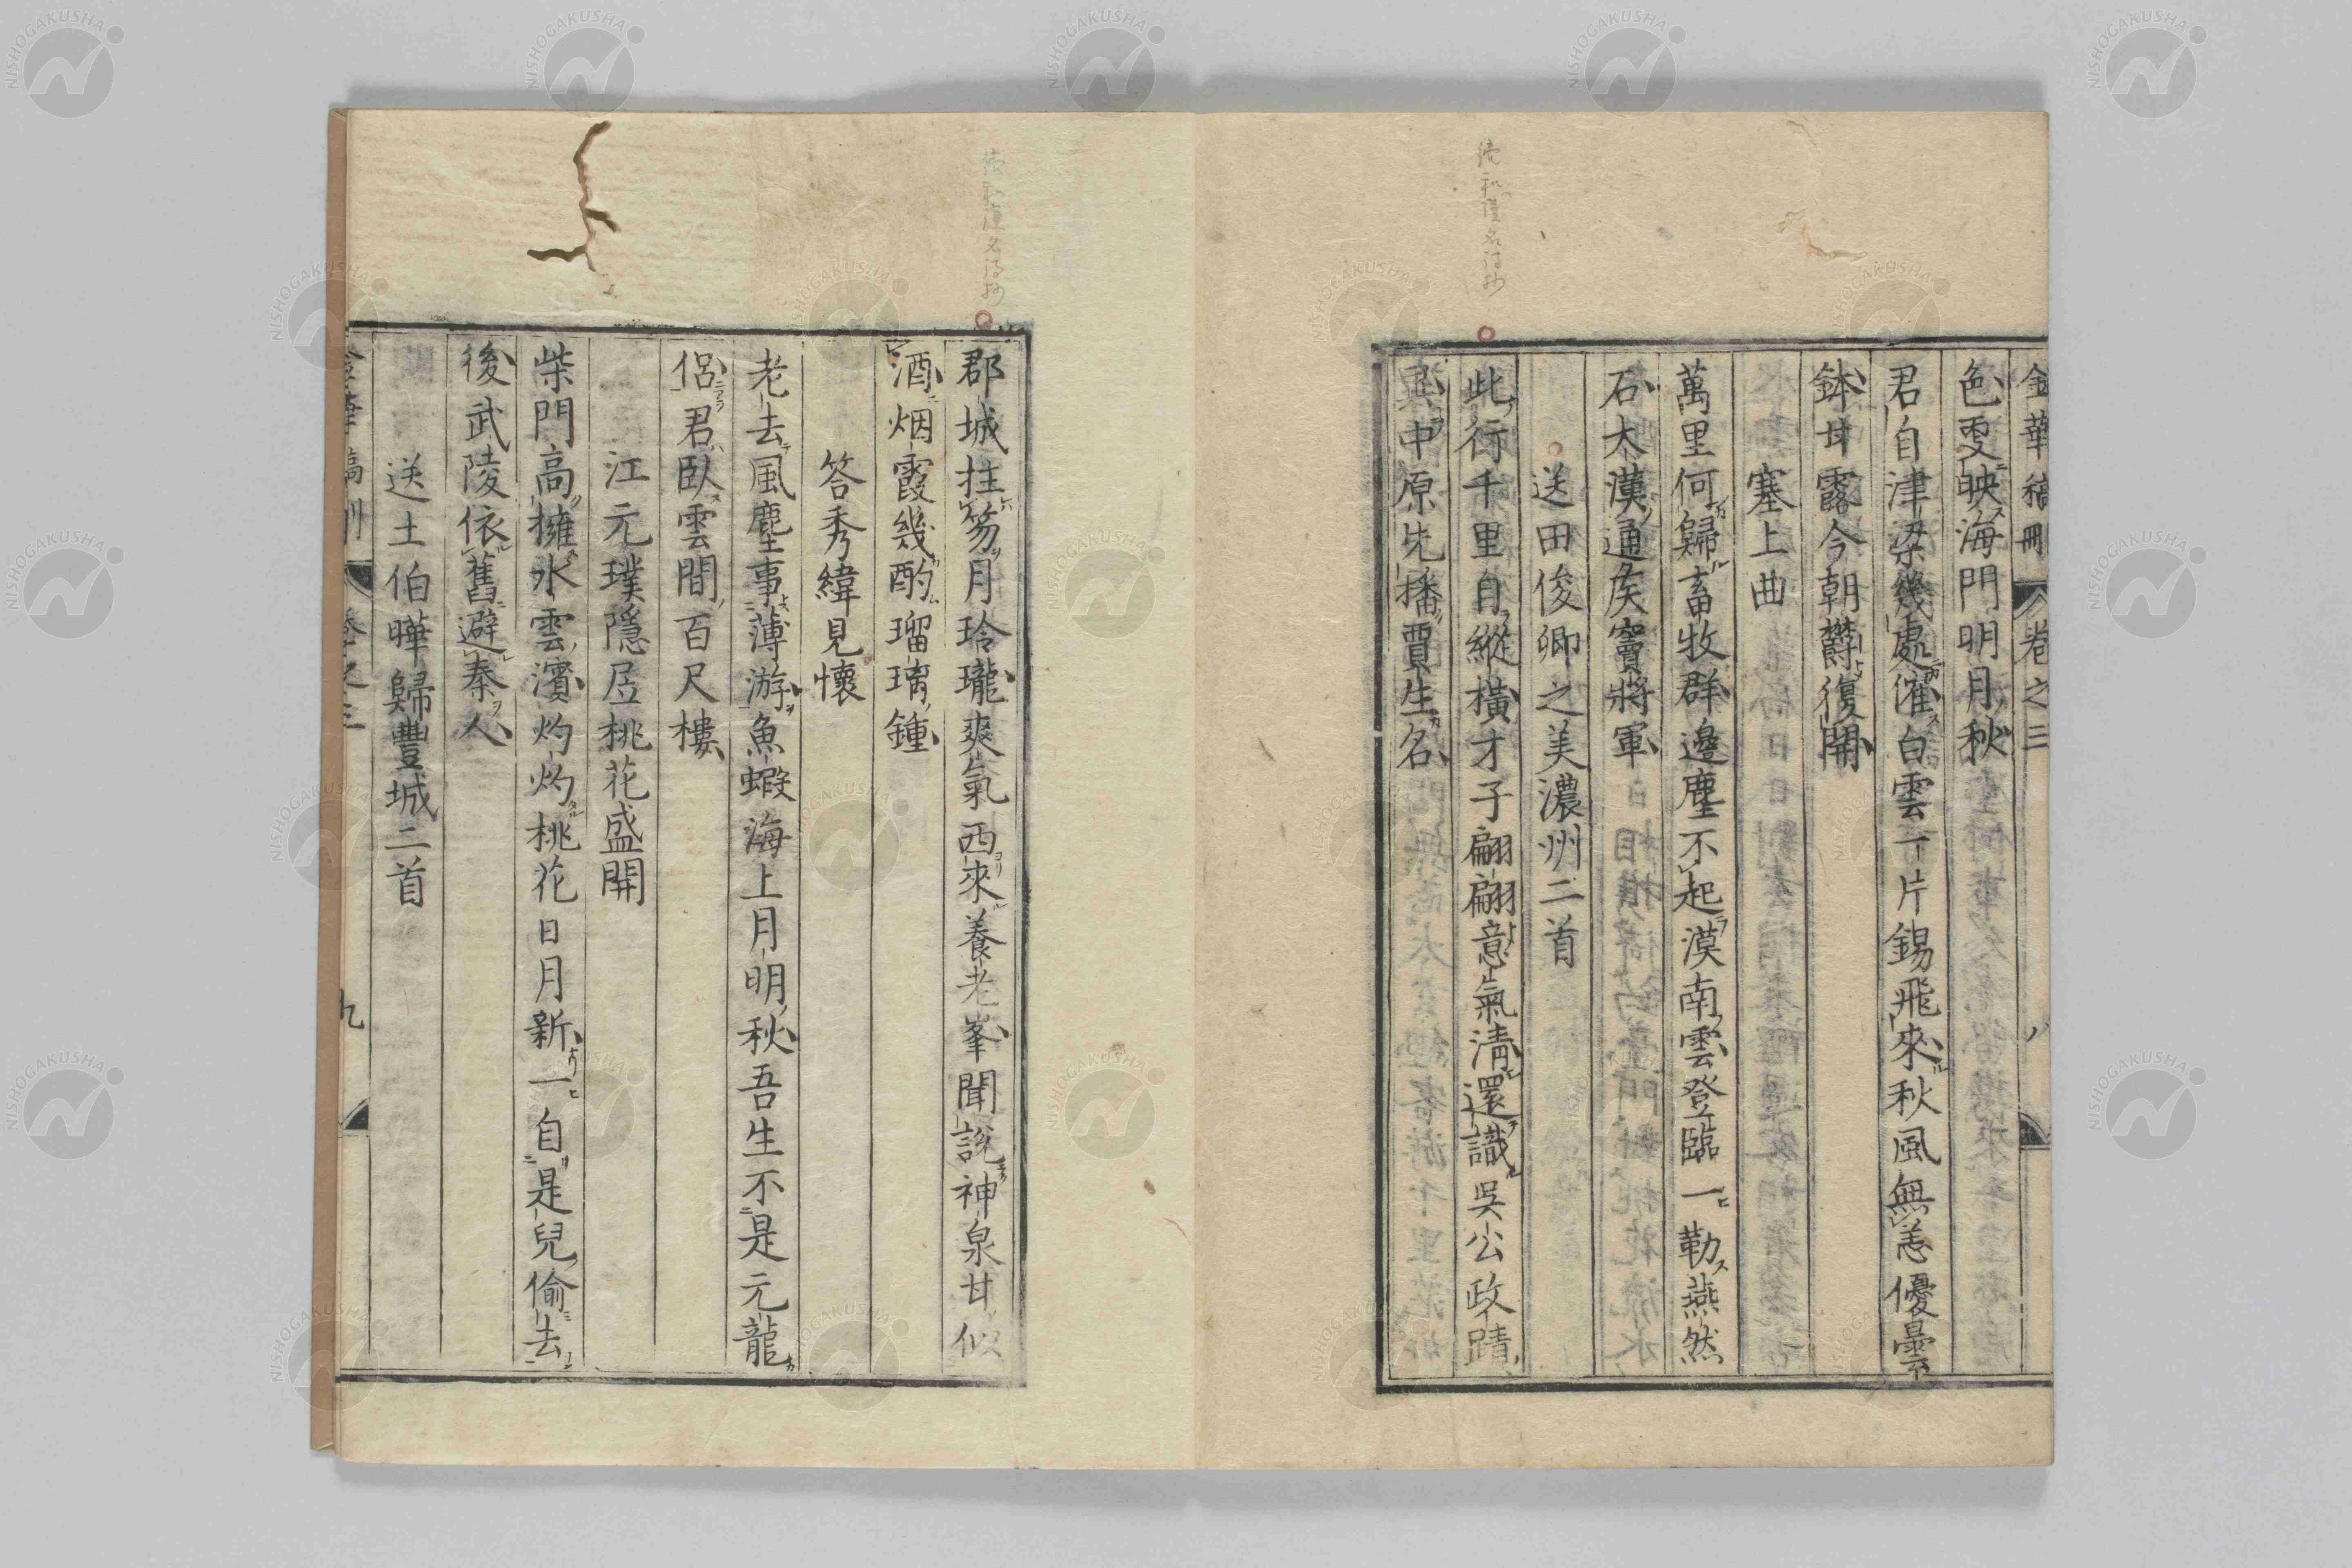 金華稿刪 卷之三 八
色更映海門明月秋
君自津梁幾處濯白雲一片錫飛來秋風無恙優曇
鉢甘露今朝欝復開
塞上曲
萬里何歸畜牧群邊塵不起漠南雲登臨一勒燕然
石大漢通矦竇將軍
送田俊卿之美濃州二首
此行千里自縱橫才子翩翩意氣清還識吳公政蹟
異中原先播賈生名
郡城拄笏月玲瓏爽氣西來養老峯聞說神泉甘似
酒烟霞幾酌瑠璃鍾
答秀緯見懷
老去風塵事薄游魚蝦海上月明秋吾生不是元龍
侶君臥雲間百尺樓
江元璞隱居桃花盛開
柴門高擁水雲濱灼灼桃花日月新一自是兒偷去
後武陵依舊避秦人
送土伯曄歸豐城二首
金華稿刪 卷之三 九
NISHOGAKUSHA